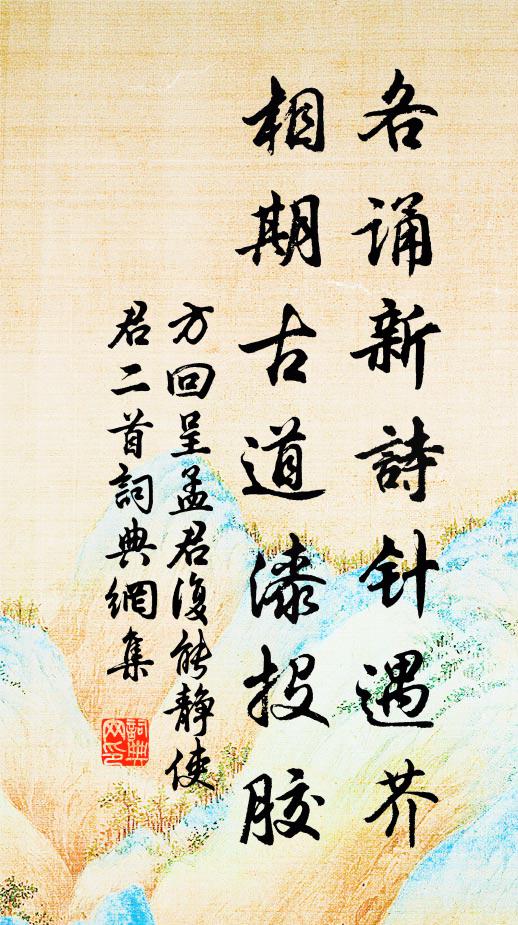 各诵新詩针遇芥
相期古道漆投胶
方回呈孟君復能静使
君二首詞典網集
詞典
网印